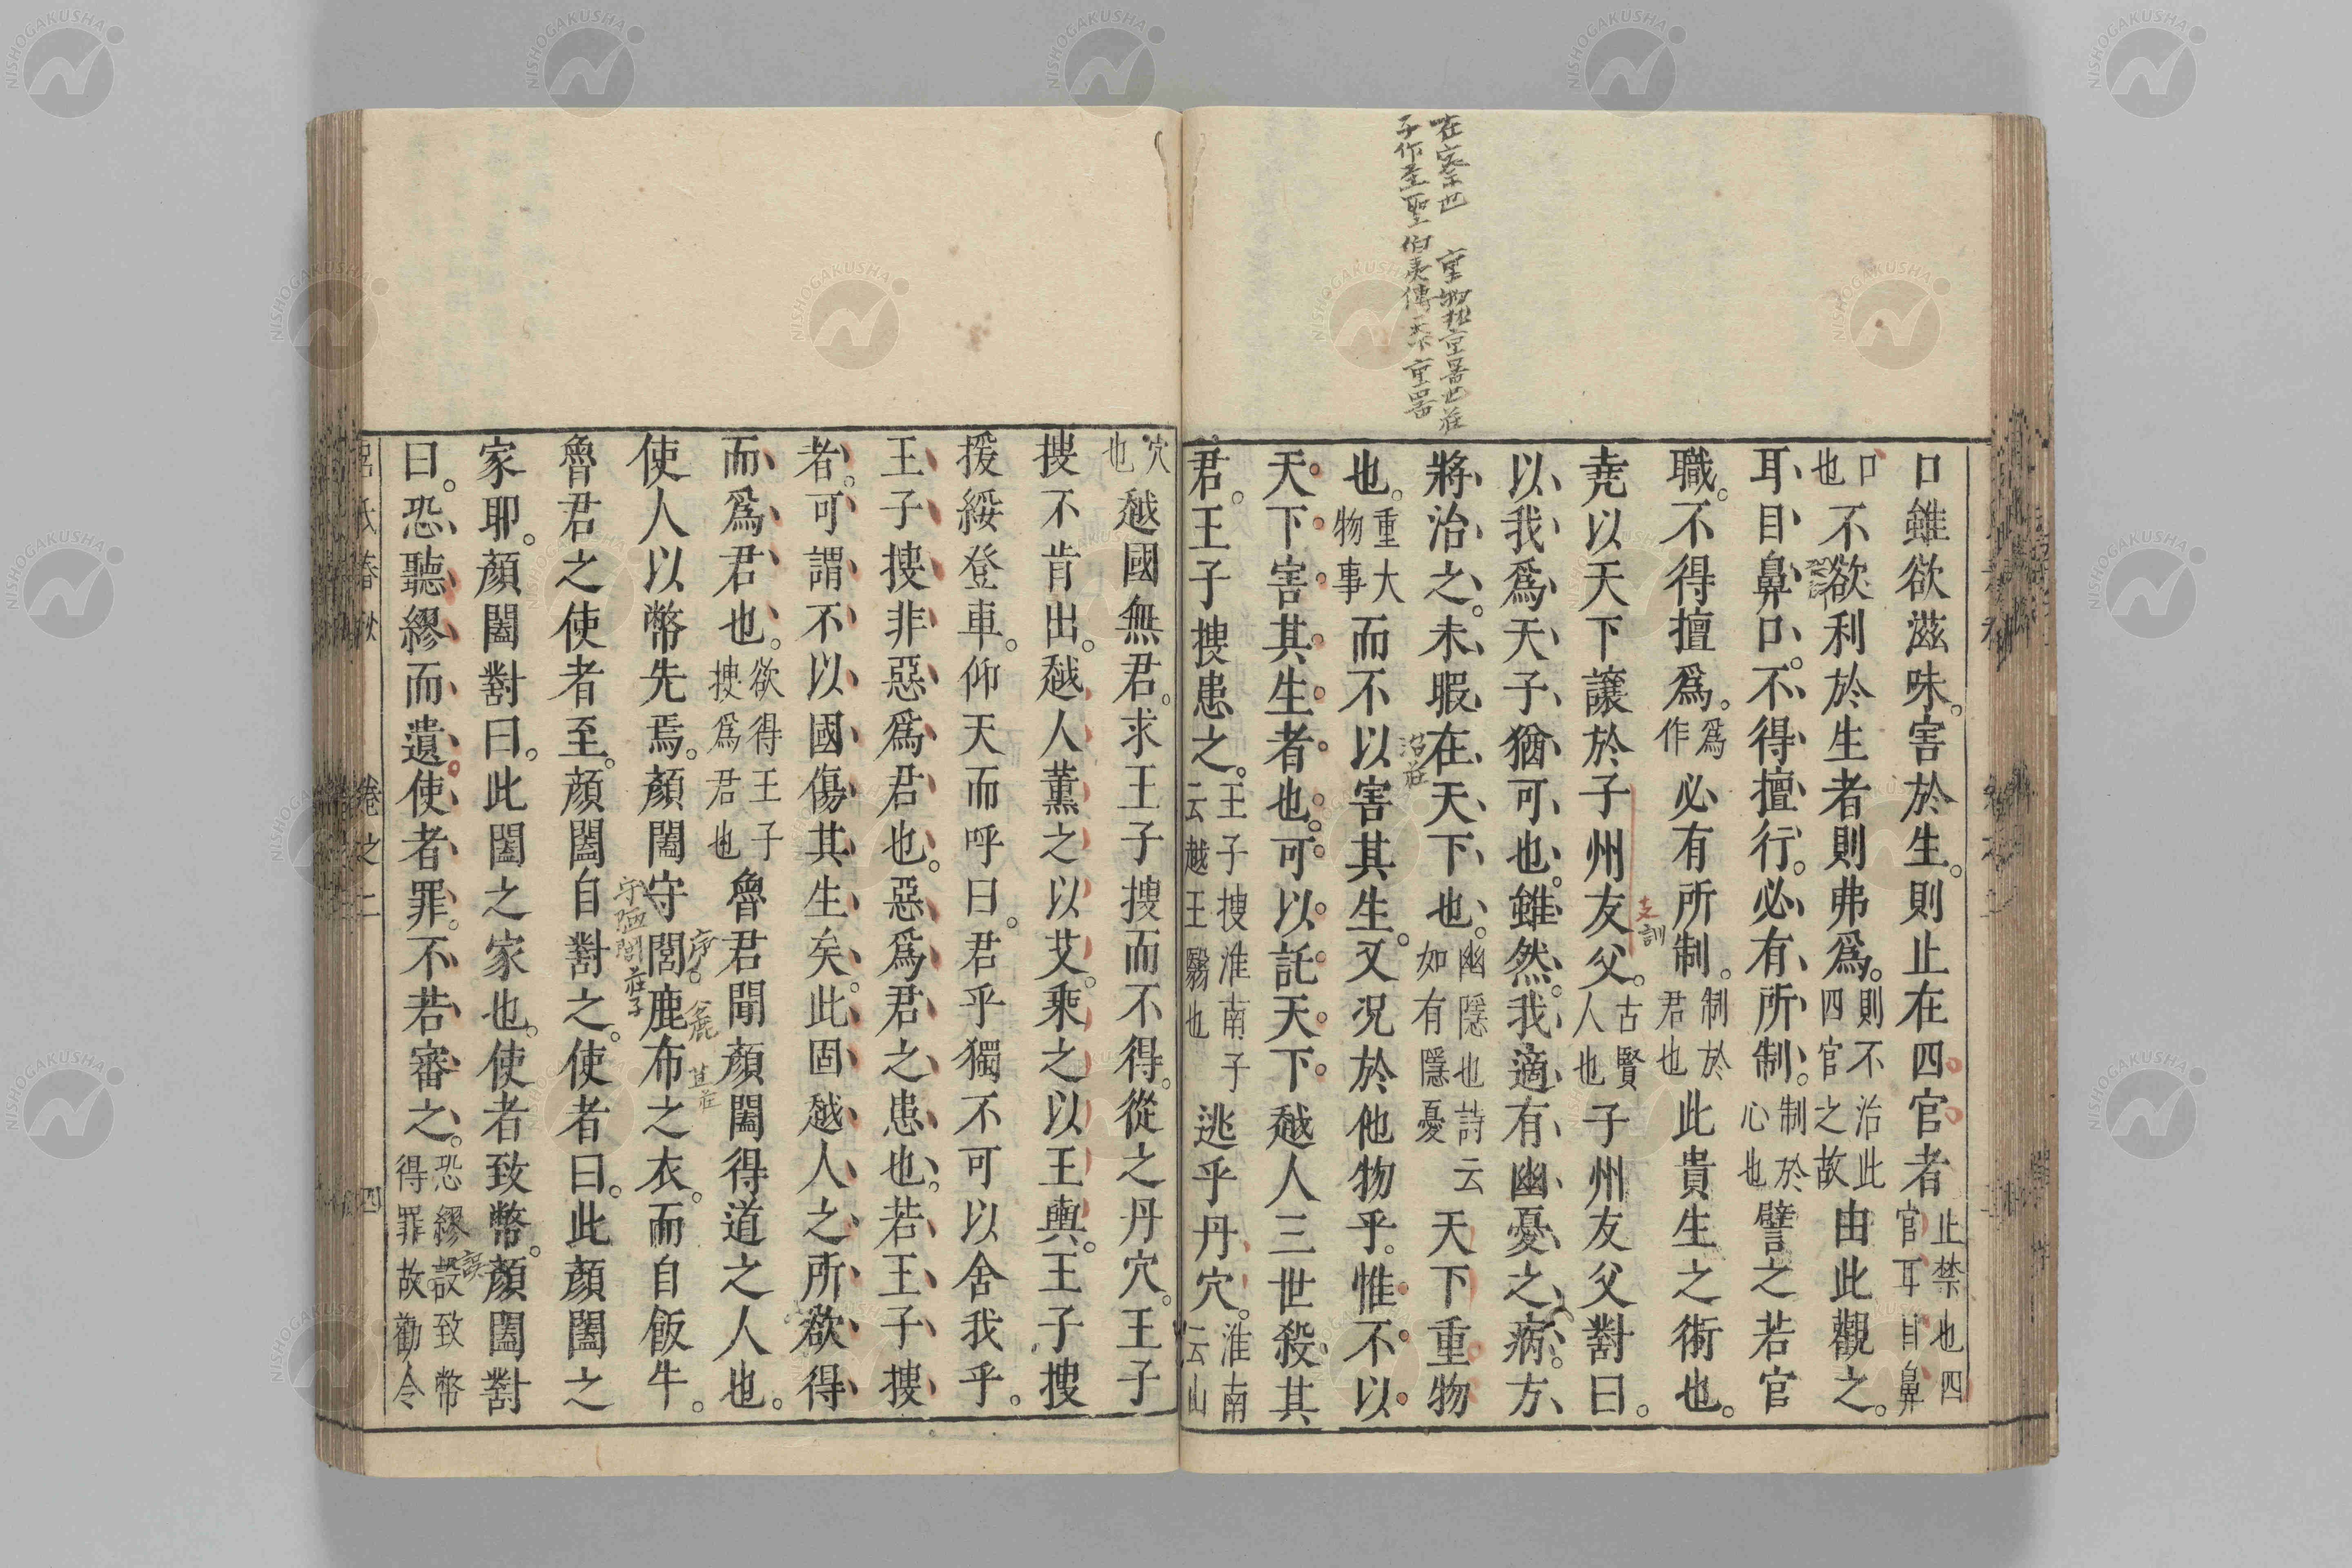 在察也 重物猶重器也莊
子作至聖伯夷傳天下重器
口雖欲滋味。害於生。則止在四官者止禁也四官耳目鼻
口也不欲利於生者則弗爲。則不治此四官之故由此觀之。
耳目鼻口。不得擅行。必有所制。制於心也譬之若官
職。不得擅爲。爲作必有所制。制於君也此貴生之術也。
堯以天下讓於子州友父。古賢人也子州友父對曰。
支訓
以我爲天子猶可也。雖然。我適有幽憂之病。方
將治之。未暇在天下也。幽隱也詩云如有隱憂天下重物
治莊
也。重大物事而不以害其生。又况於他物乎。惟不以
天下害其生者也。可以託天下。越人三世殺其
君。王子搜患之。王子搜淮南子云越王翳也逃乎丹穴。淮南云山
穴也越國無君。求王子搜而不得。從之丹穴。王子
搜不肯出。越人薰之以艾。乘之以王輿。王子搜
援綏登車。仰天而呼曰。君乎獨不可以舍我乎。
王子搜非惡爲君也。惡爲君之患也。若王子搜
者。可謂不以國傷其生矣。此固越人之所欲得
而爲君也。欲得王子搜爲君也魯君聞顏闔得道之人也。
使人以幣先焉。顏闔守閭。鹿布之衣。而自飯牛。
守陋閭莊子
苴莊
魯君之使者至。顏闔自對之。使者曰。此顏闔之
家耶。顏闔對曰。此闔之家也。使者致幣。顏闔對
曰。恐聽繆而遺使者罪。不若審之。恐繆設致幣得罪故勸令
誤
呂氏春秋 卷之二 四